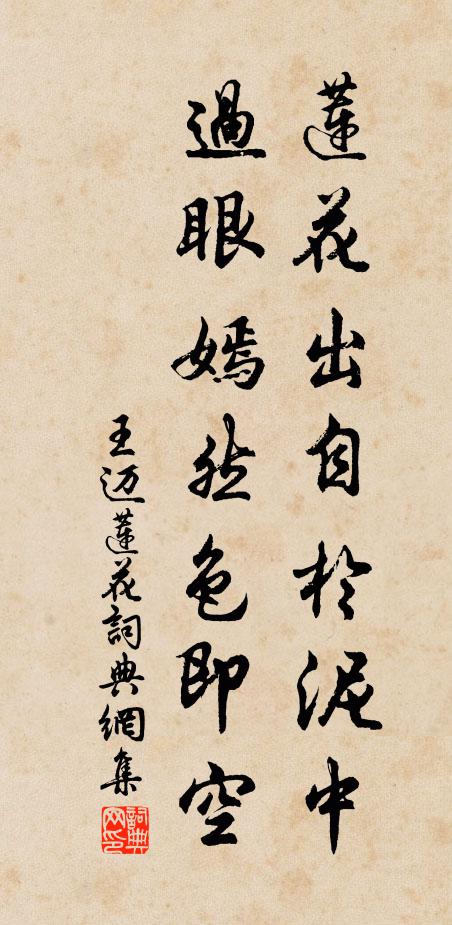 蓮花出自於泥中
過眼嫣然色即空
王迈蓮花詞典網集
詞典網印